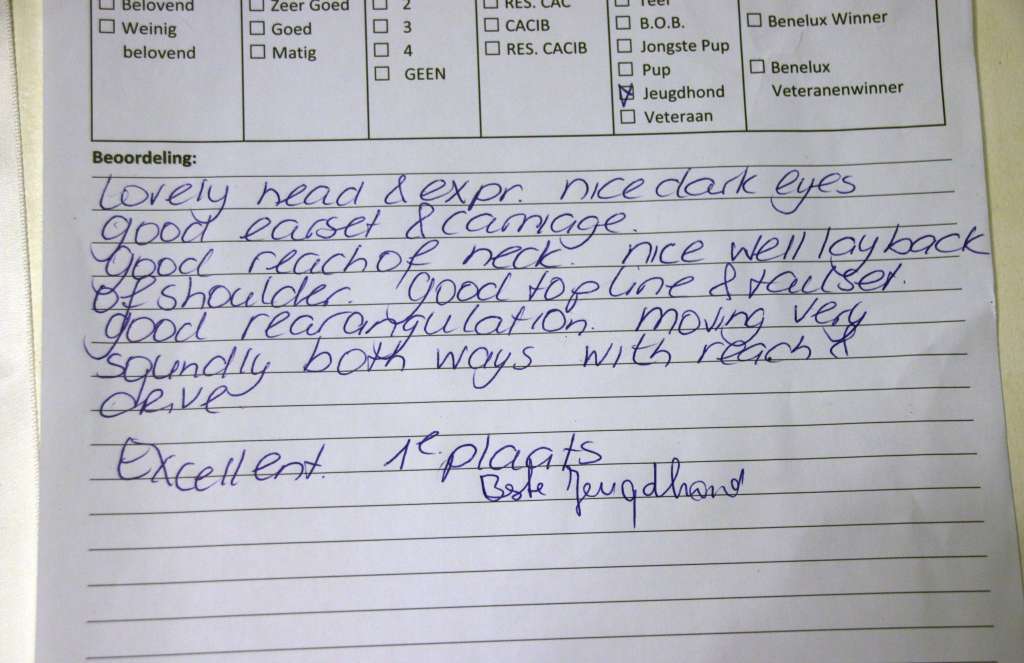 Belovend Zeer Goed 2 RES. CAC
Weinig belovend Goed 3 CACIB B.O.B. Benelux Winner
Matig 4 RES. CACIB Jongste Pup
GEEN Pup Benelux Veteranenwinner
Jeugdhond
Veteraan
Beoordeling:
Lovely head & expr. nice dark eyes
good earset & carriage.
good reach of neck. nice well layback
of shoulder. good topline & tailset.
good rearangulation. moving very
soundly both ways with reach &
drive
Excellent. 1e plaats
Beste Jeugdhond